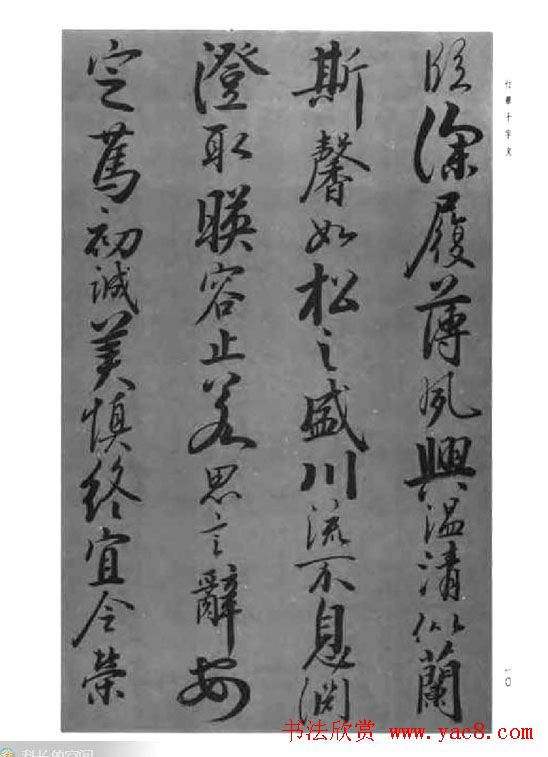 臨深履薄夙興温清似蘭
斯馨如松之盛川流不息渊
澄取暎容止若思言辭安
定篤初誠美慎終宜令榮
行書千字文
一〇
书法欣赏 www.yac8.com
科长的空间